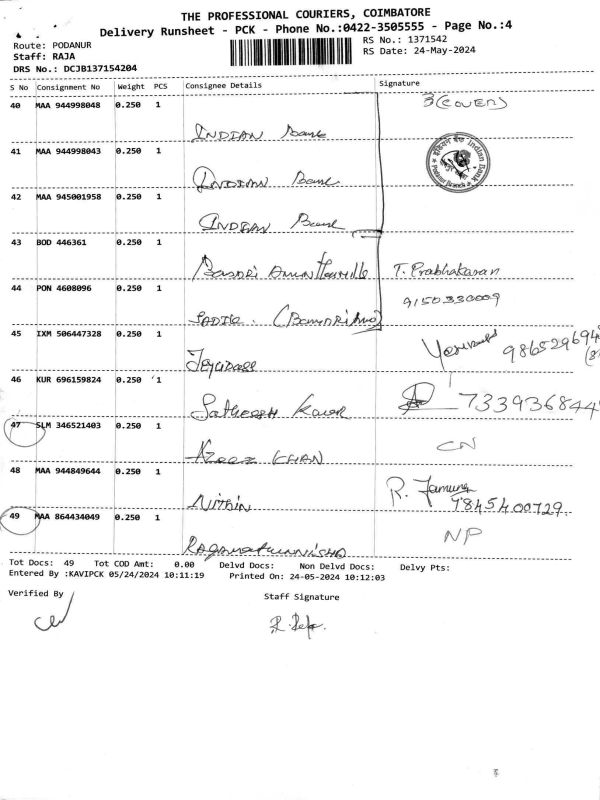 THE PROFESSIONAL COURIERS, COIMBATORE
Delivery Runsheet - PCK - Phone No.:0422-3505555 - Page No.:4
Route: PODANUR RS No.: 1371542
Staff: RAJA RS Date: 24-May-2024
DRS No.: DCJB137154204
S No Consignment No Weight PCS Consignee Details Signature
40 MAA 944998048 0.250 1 3 (COVER)
INDIAN Bank
41 MAA 944998043 0.250 1
INDIAN Bank
42 MAA 945001958 0.250 1
INDIAN Bank
43 BOD 446361 0.250 1
T. Prabhakaran
44 PON 4608096 0.250 1 9150330009
45 IXM 506447328 0.250 1
Jeyadass
46 KUR 696159824 0.250 1
7339368441
47 SLM 346521403 0.250 1 CN
Azeez KHAN
48 MAA 944849644 0.250 1
Nithin R. Jamuna
7845400729
49 MAA 864434049 0.250 1 NP
Tot Docs: 49 Tot COD Amt: 0.00 Delvd Docs: Non Delvd Docs: Delvy Pts:
Entered By :KAVIPCK 05/24/2024 10:11:19 Printed On: 24-05-2024 10:12:03
Verified By Staff Signature